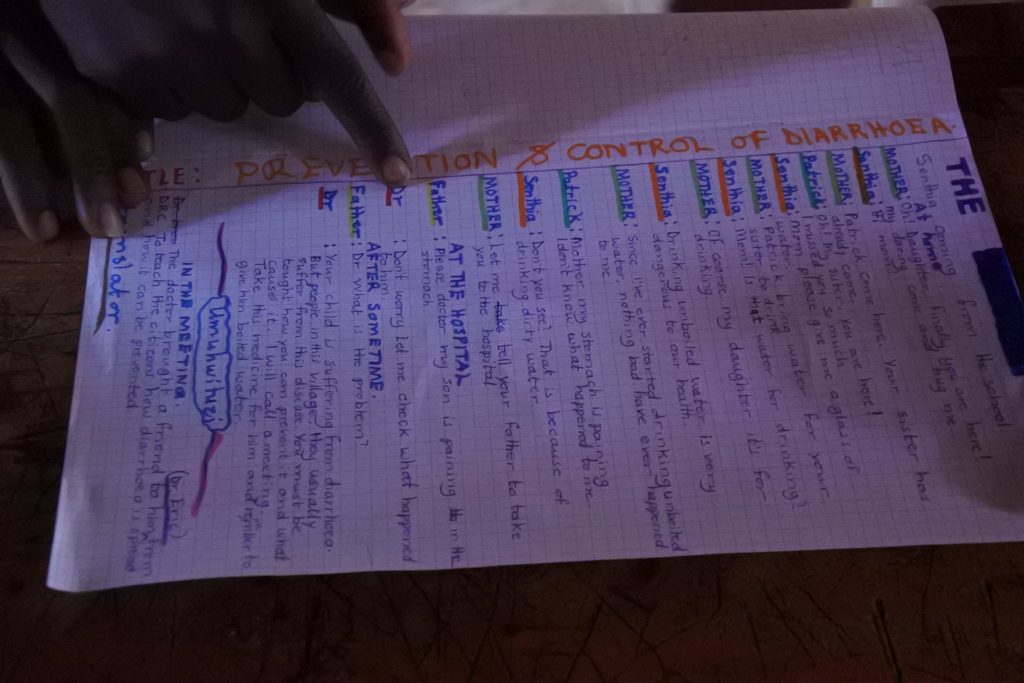 TLE: PREVE TION & CONTROL OF DIARRHOEA.
THE
Senthia coming from the school
At home
MOTHER: Oh! Daughter, finally you are here!
my darling, come and hug me
Senthia:
MOTHER: Patrick come here your sister has
already come. you are here!
Patrick: Oh! my sister,
I missed you so much a glass of
Senthia: Mom please give me
water. Patrick bring water for your
MOTHER: sister to drink
Senthia: Mom! Is that water for drinking?
MOTHER: Of course my daughter it's for
drinking.
Senthia: Drinking unboiled water is very
dangerous to our health.
MOTHER: Since I've ever started drinking unboiled
water, nothing bad have ever happened
to me
Patrick: Mother my stomach is paining
I don't know what happened to me.
Senthia: Don't you see? That is because of
drinking dirty water.
MOTHER: Let me take tell your father to take
you to the hospital
AT THE HOSPITAL
Father: Please doctor my son is paining in the
stomach
Dr: Don't worry let me check what happened
to him.
AFTER SOMETIME.
Father: Dr. What is the problem?
Dr: Your child is suffering from diarrhoea.
But people in this village! How usually
suffer from this disease. You must be
tought how you can prevent it and what
causes it. I will call a meeting.
Take this medicine for him and remember to
give him boiled water.
Umuhwituzi
IN THE MEETING.
(Dr Eric)
The doctor brought a friend to him from
DRC To teach the citizens how diarrhoea is spread
and how it can be prevented
nslator.